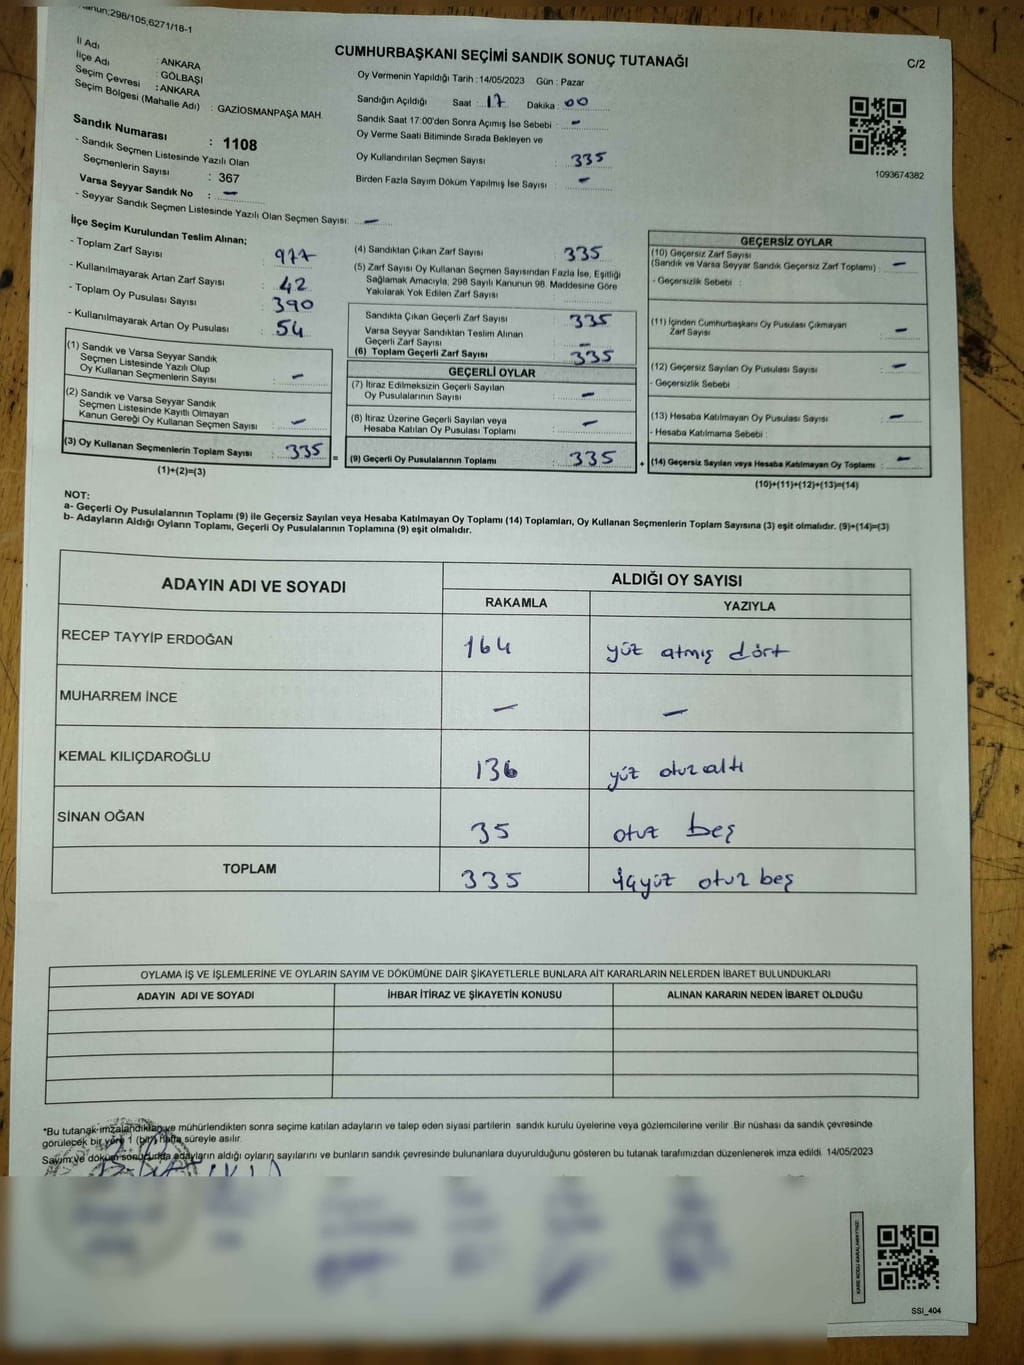 Kanun:298/105,6271/18-1
CUMHURBAŞKANI SEÇİMİ SANDIK SONUÇ TUTANAĞI
C/2
İl Adı : ANKARA
İlçe Adı : GÖLBAŞI
Seçim Çevresi : ANKARA
Seçim Bölgesi (Mahalle Adı) : GAZİOSMANPAŞA MAH.
Sandık Numarası : 1108
- Sandık Seçmen Listesinde Yazılı Olan
Seçmenlerin Sayısı : 367
Varsa Seyyar Sandık No : –
- Seyyar Sandık Seçmen Listesinde Yazılı Olan Seçmen Sayısı: –
Oy Vermenin Yapıldığı Tarih : 14/05/2023 Gün : Pazar
Sandığın Açıldığı Saat : 17 Dakika : 00
Sandık Saat 17:00'den Sonra Açımış İse Sebebi : –
Oy Verme Saati Bitiminde Sırada Bekleyen ve
Oy Kullandırılan Seçmen Sayısı : 335
Birden Fazla Sayım Döküm Yapılmış İse Sayısı : –
1093674382
İlçe Seçim Kurulundan Teslim Alınan;
- Toplam Zarf Sayısı : 977
- Kullanılmayarak Artan Zarf Sayısı : 42
- Toplam Oy Pusulası Sayısı : 390
- Kullanılmayarak Artan Oy Pusulası : 54
(1) Sandık ve Varsa Seyyar Sandık
Seçmen Listesinde Yazılı Olup
Oy Kullanan Seçmenlerin Sayısı : –
(2) Sandık ve Varsa Seyyar Sandık
Seçmen Listesinde Kayıtlı Olmayan
Kanun Gereği Oy Kullanan Seçmen Sayısı : –
(3) Oy Kullanan Seçmenlerin Toplam Sayısı : 335
(1)+(2)=(3)
(4) Sandıktan Çıkan Zarf Sayısı : 335
(5) Zarf Sayısı Oy Kullanan Seçmen Sayısından Fazla İse, Eşitliği
Sağlamak Amacıyla, 298 Sayılı Kanunun 98. Maddesine Göre
Yakılarak Yok Edilen Zarf Sayısı :
Sandıkta Çıkan Geçerli Zarf Sayısı : 335
Varsa Seyyar Sandıktan Teslim Alınan
Geçerli Zarf Sayısı : –
(6) Toplam Geçerli Zarf Sayısı : 335
GEÇERLİ OYLAR
(7) İtiraz Edilmeksizin Geçerli Sayılan
Oy Pusulalarının Sayısı : –
(8) İtiraz Üzerine Geçerli Sayılan veya
Hesaba Katılan Oy Pusulası Toplamı : –
= (9) Geçerli Oy Pusulalarının Toplamı : 335 +
GEÇERSİZ OYLAR
(10) Geçersiz Zarf Sayısı
(Sandık ve Varsa Seyyar Sandık Geçersiz Zarf Toplamı) : –
- Geçersizlik Sebebi :
(11) İçinden Cumhurbaşkanı Oy Pusulası Çıkmayan
Zarf Sayısı : –
(12) Geçersiz Sayılan Oy Pusulası Sayısı : –
- Geçersizlik Sebebi :
(13) Hesaba Katılmayan Oy Pusulası Sayısı : –
- Hesaba Katılmama Sebebi :
(14) Geçersiz Sayılan veya Hesaba Katılmayan Oy Toplamı : –
(10)+(11)+(12)+(13)=(14)
NOT:
a- Geçerli Oy Pusulalarının Toplamı (9) ile Geçersiz Sayılan veya Hesaba Katılmayan Oy Toplamı (14) Toplamları, Oy Kullanan Seçmenlerin Toplam Sayısına (3) eşit olmalıdır. (9)+(14)=(3)
b- Adayların Aldığı Oyların Toplamı, Geçerli Oy Pusulalarının Toplamına (9) eşit olmalıdır.
ADAYIN ADI VE SOYADI
ALDIĞI OY SAYISI
RAKAMLA YAZIYLA
RECEP TAYYİP ERDOĞAN 164 yüz atmış dört
MUHARREM İNCE – –
KEMAL KILIÇDAROĞLU 136 yüz otuz altı
SİNAN OĞAN 35 otuz beş
TOPLAM 335 üçyüz otuz beş
OYLAMA İŞ VE İŞLEMLERİNE VE OYLARIN SAYIM VE DÖKÜMÜNE DAİR ŞİKAYETLERLE BUNLARA AİT KARARLARIN NELERDEN İBARET BULUNDUKLARI
ADAYIN ADI VE SOYADI İHBAR İTİRAZ VE ŞİKAYETİN KONUSU ALINAN KARARIN NEDEN İBARET OLDUĞU
*Bu tutanak imzalandıktan ve mühürlendikten sonra seçime katılan adayların ve talep eden siyasi partilerin sandık kurulu üyelerine veya gözlemcilerine verilir .Bir nüshası da sandık çevresinde
görülebilecek bir yere 1 (bir) hafta süreyle asılır.
Sayım ve döküm sonucunda adayların aldığı oyların sayılarını ve bunların sandık çevresinde bulunanlara duyurulduğunu gösteren bu tutanak tarafımızdan düzenlenerek imza edildi. 14/05/2023
SSI_404